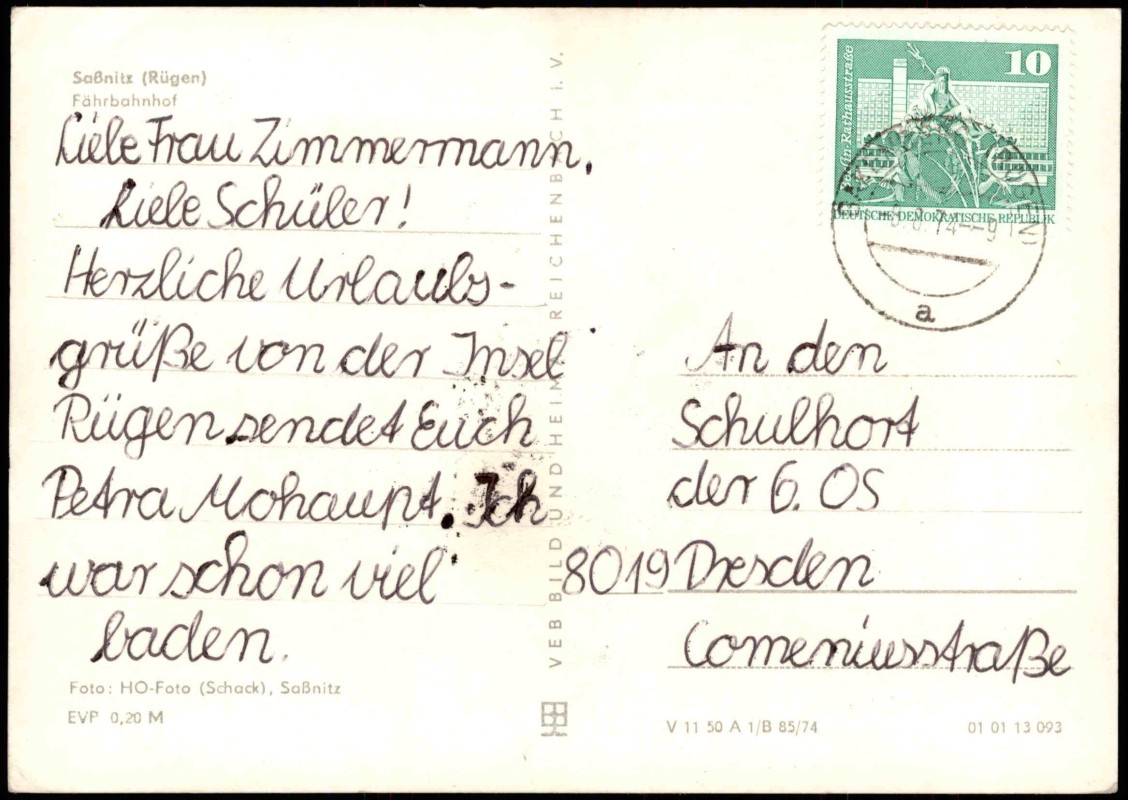 Saßnitz (Rügen)
Fährbahnhof
Liebe Frau Zimmermann,
Liebe Schüler!
Herzliche Urlaubs-
grüße von der Insel
Rügen sendet Euch
Petra Mohaupt. Ich
war schon viel
baden.
Foto: HO-Foto (Schack), Saßnitz
EVP 0,20 M
VEB BILD UND HEIMAT REICHENBACH i. V.
10
Berlin Rathausstraße
DEUTSCHE DEMOKRATISCHE REPUBLIK
a
An den
Schulhort
der 6. OS
8019 Dresden
Comeniusstraße
V 11 50 A 1/B 85/74
01 01 13 093